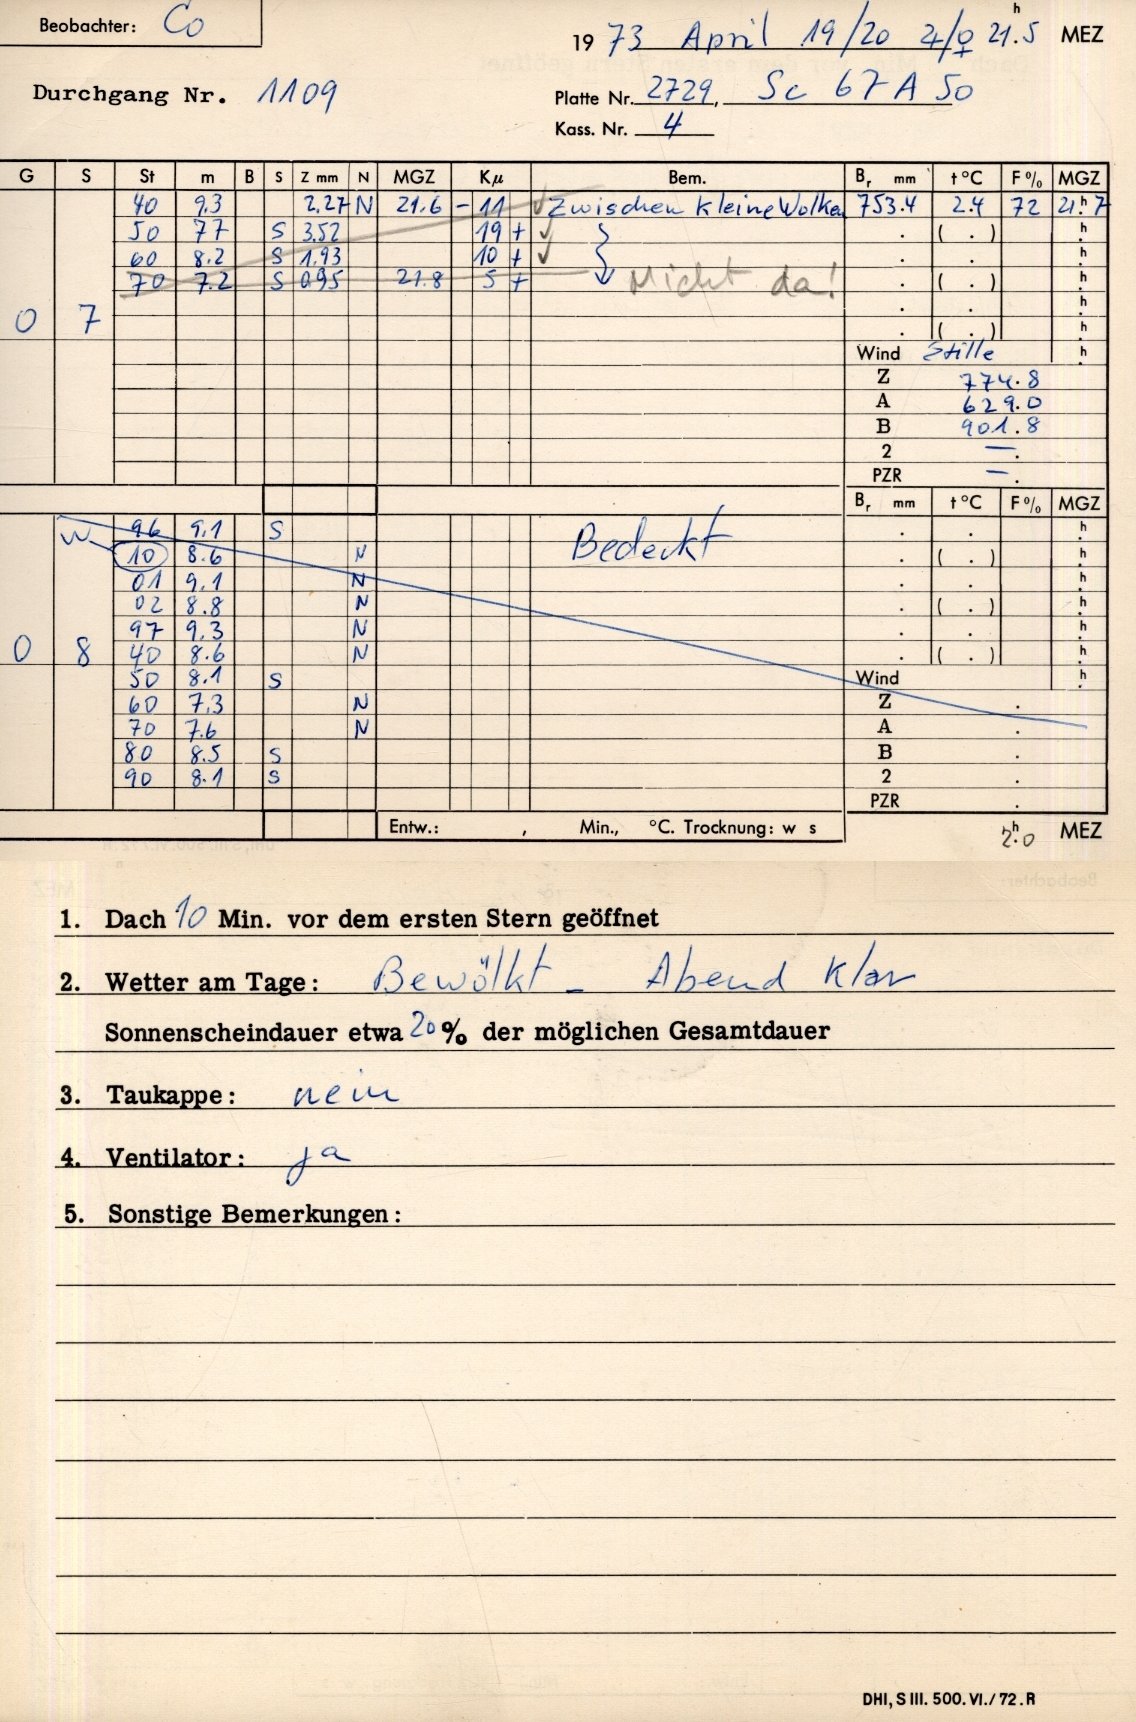 Beobachter: Co
1973 April 19/20 ♃/♀ 21.h5 MEZ
Durchgang Nr. 1109
Platte Nr. 2729, Sc 67 A 50
Kass. Nr. 4
G S St m B S Z mm N MGZ Kμ Bem. Br mm t°C F% MGZ
40 9.3 2.27 N 21.6 - 11 √ Zwischen kleine Wolken 753.4 2.4 72 21.h7
50 7.7 S 3.52 19 + √ . ( . ) .h
60 8.2 S 1.93 10 + √ . . .h
70 7.2 S 0.95 21.8 5 + Nicht da! . ( . ) .h
. . .h
0 7 . ( . ) .h
Wind Stille .h
Z 774.8
A 629.0
B 901.8
2 — .
PZR — .
Br mm t°C F% MGZ
W 96 9.1 S Bedeckt . . .h
10 8.6 N . ( . ) .h
01 9.1 N . . .h
02 8.8 N . ( . ) .h
97 9.3 N . . .h
0 8 40 8.6 N . ( . ) .h
50 8.1 S Wind .h
60 7.3 N Z .
70 7.6 N A .
80 8.5 S B .
90 8.1 S 2 .
PZR .
Entw.: , Min., °C. Trocknung: w s 2.h0 MEZ
1. Dach 10 Min. vor dem ersten Stern geöffnet
2. Wetter am Tage: Bewölkt - Abend klar
Sonnenscheindauer etwa 20% der möglichen Gesamtdauer
3. Taukappe: nein
4. Ventilator: ja
5. Sonstige Bemerkungen:
DHI, S III. 500. VI./72. R